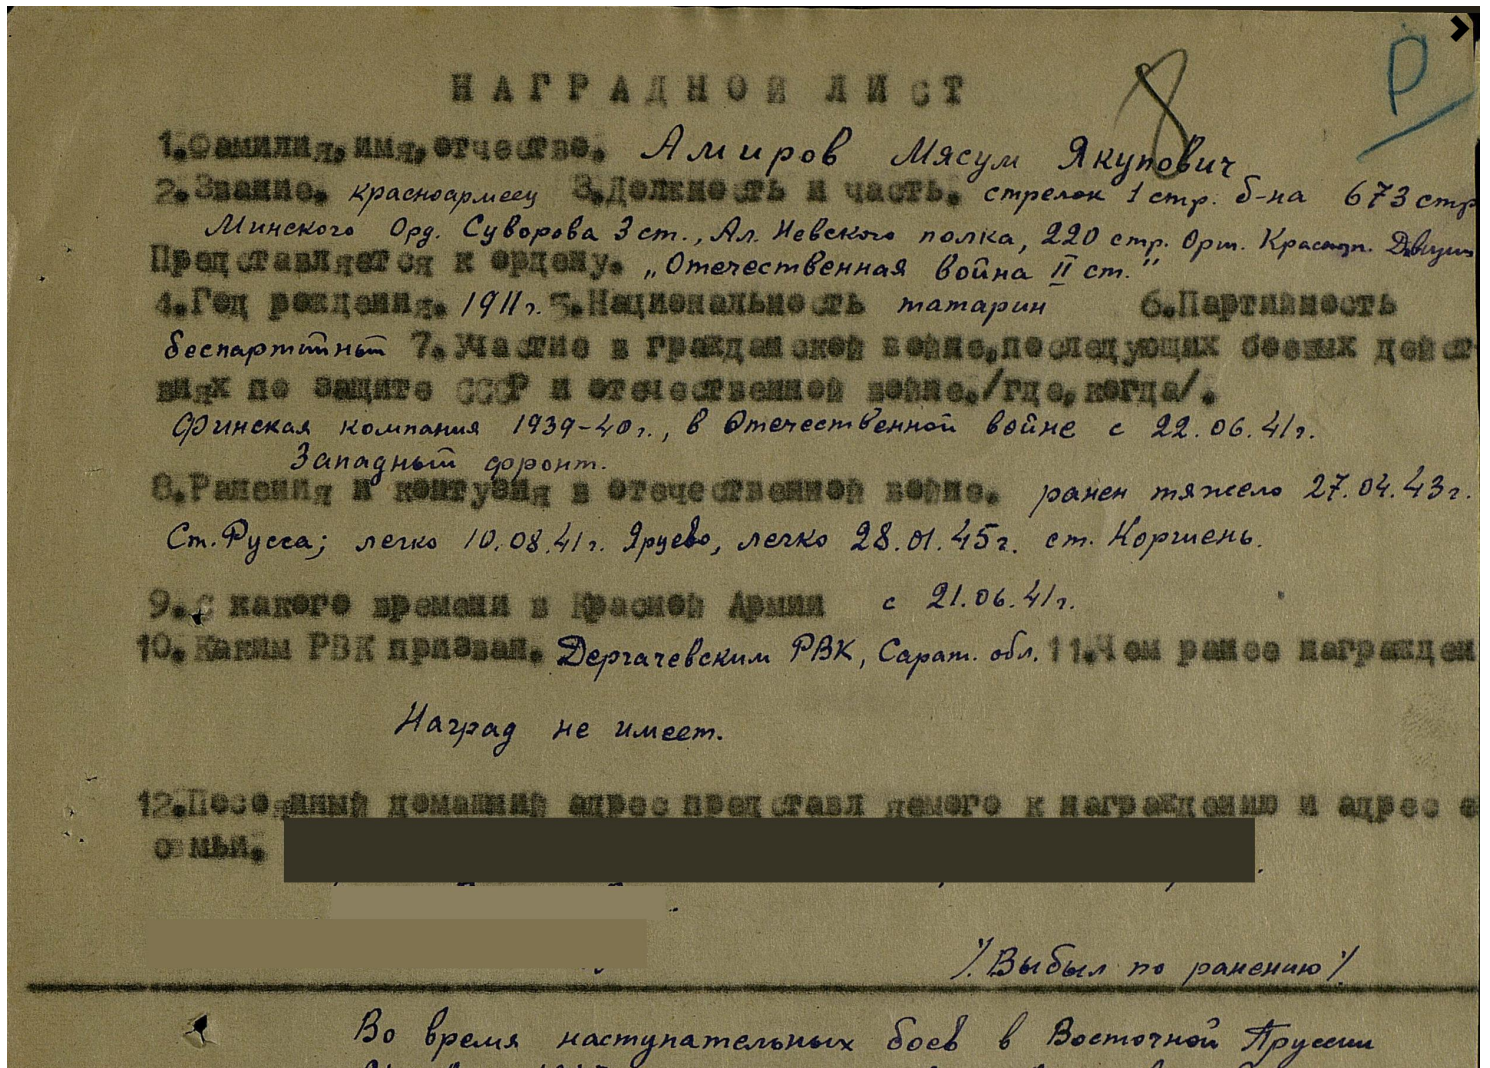 Р
8
НАГРАДНОЙ ЛИСТ
1.Фамилия,имя,отчество. Амиров Мясум Якупович
2.Звание. красноармеец 3.Должность и часть. стрелок 1 стр. б-на 673 стр
Минского Орд. Суворова 3 ст., Ал. Невского полка, 220 стр. Орш.
Представляется к ордену. „Отечественная война II ст."
4.Год рождения. 1911 г. 5.Национальность татарин 6.Партийность
беспартийный 7.Участие в гражданской войне,последующих боевых дейст
виях по защите СССР и отечественной войне./где,когда/.
Финская компания 1939-40 г., в Отечественной войне с 22.06.41 г.
Западный фронт.
8.Ранения и контузия в отечественной войне. ранен тяжело 27.04.43 г.
Ст. Русса; легко 10.08.41 г. Яруево, легко 28.01.45 г. ст. Коршень.
9.с какого времени в Красной Армии с 21.06.41 г.
10.Каким РВК призван. Дергачевским РВК, Сарат. обл. 11.Чем ранее награжден
Наград не имеет.
12.Посоянный домашний адрес представл яемого к награждению и адрес е
семьи.
/. Выбыл по ранению /.
Во время наступательных боев в Восточной Пруссии